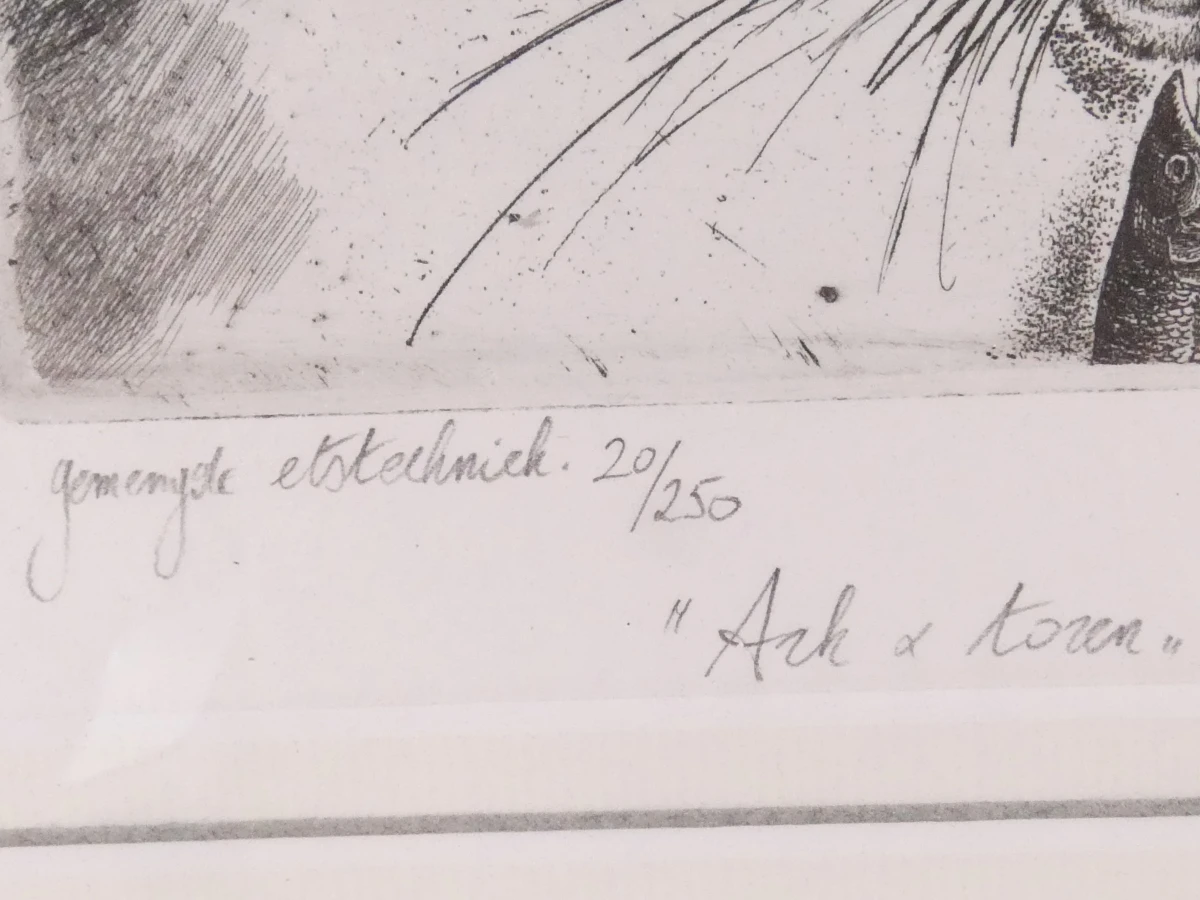 gemengde etstechniek. 20/250
"Ark & toren"